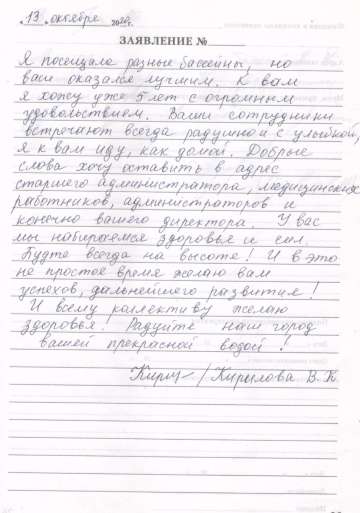 13 октября 2020г.
ЗАЯВЛЕНИЕ №
Я посещала разные бассейны, но
ваш оказался лучшим. К вам
я хожу уже 5 лет с огромным
удовольствием. Ваши сотрудники
встречают всегда радушно и с улыбкой,
я к вам иду, как домой. Добрые
слова хочу оставить в адрес
старшего администратора, медицинских
работников, администраторов и
конечно вашего директора. У вас
мы набираемся здоровья и сил.
Будте всегда на высоте! И в это
не простое время желаю вам
успехов, дальнейшего развития!
И всему коллективу желаю
здоровья! Радуйте наш город
вашей прекрасной водой!
/Кирылова В. К